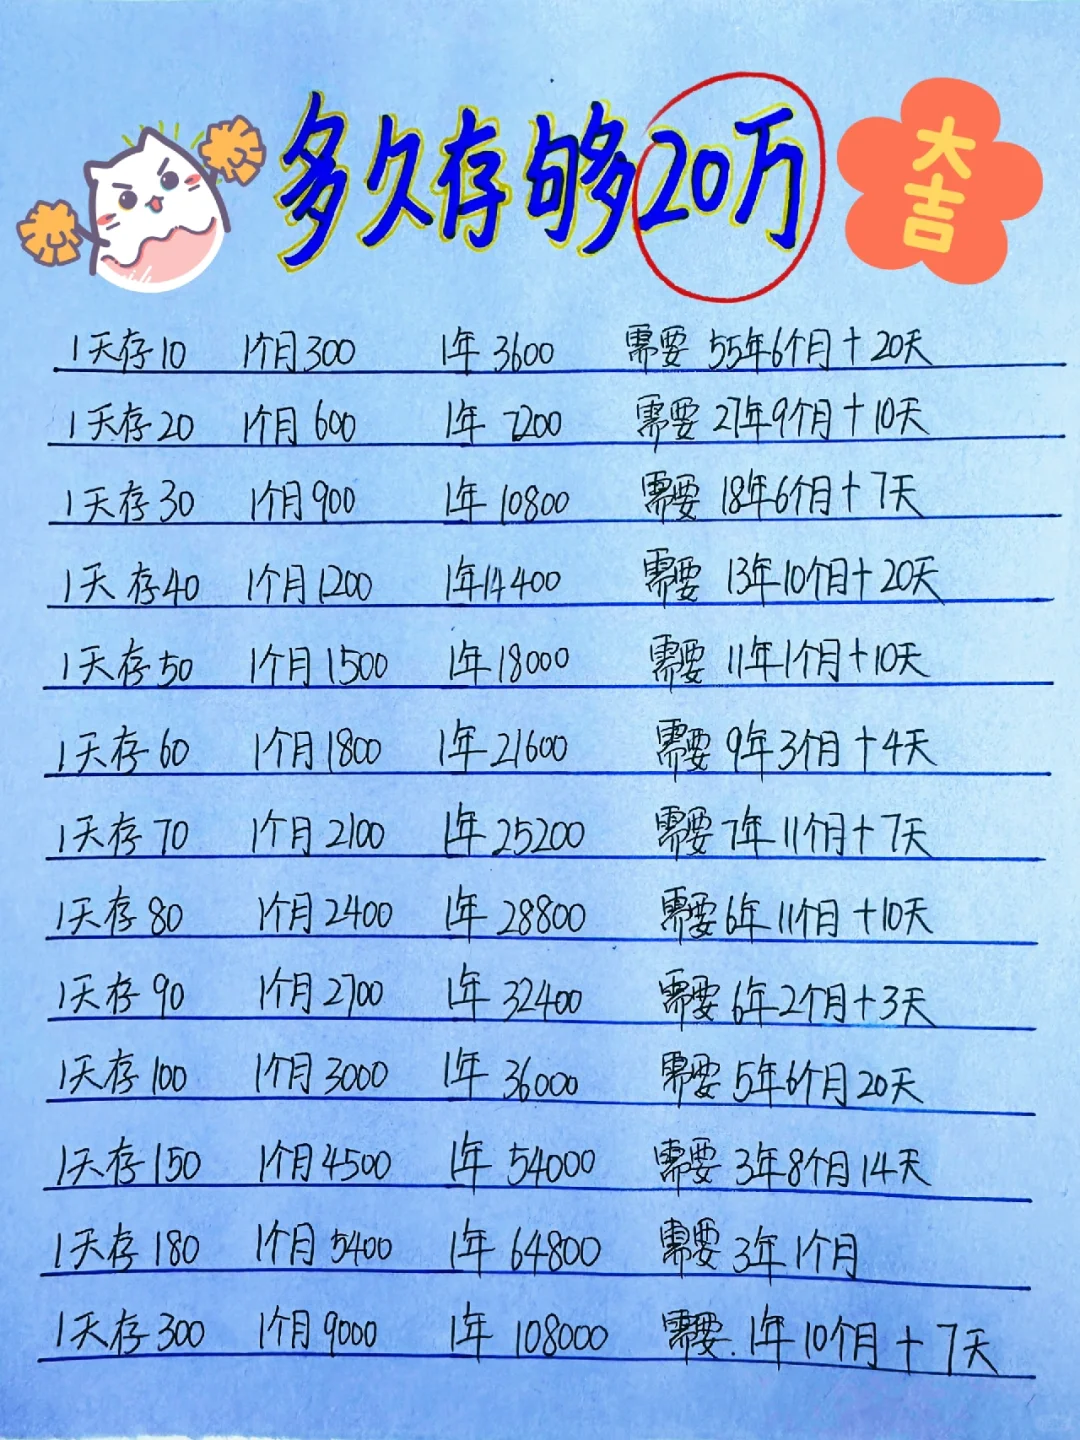 多久存够20万
大吉
1天存10 1个月300 1年3600 需要55年6个月+20天
1天存20 1个月600 1年7200 需要27年9个月+10天
1天存30 1个月900 1年10800 需要18年6个月+7天
1天存40 1个月1200 1年14400 需要13年10个月+20天
1天存50 1个月1500 1年18000 需要11年1个月+10天
1天存60 1个月1800 1年21600 需要9年3个月+4天
1天存70 1个月2100 1年25200 需要7年11个月+7天
1天存80 1个月2400 1年28800 需要6年11个月+10天
1天存90 1个月2700 1年32400 需要6年2个月+3天
1天存100 1个月3000 1年36000 需要5年6个月20天
1天存150 1个月4500 1年54000 需要3年8个月14天
1天存180 1个月5400 1年64800 需要3年1个月
1天存300 1个月9000 1年108000 需要.1年10个月+7天